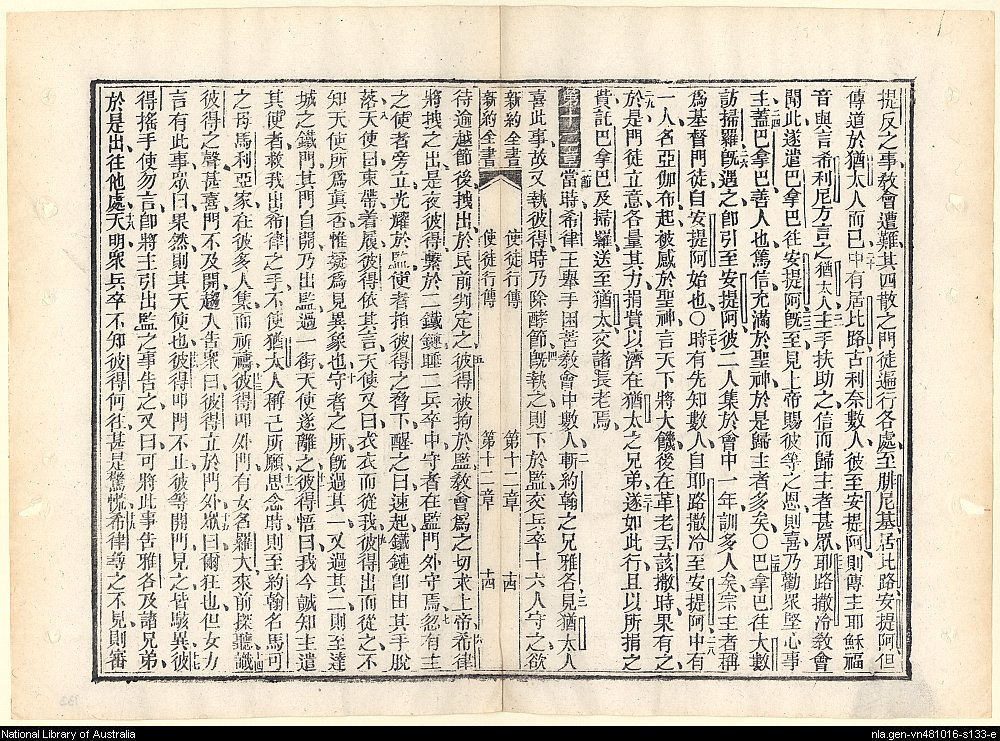 提反之事教會遭難其四散之門徒遍行各處至腓尼基居比路安提阿但
傳道於猶太人而已中有居比路古利奈數人彼至安提阿則傳主耶穌福
音與言希利尼方言之猶太人主手扶助之信而歸主者甚眾耶路撒冷教會
聞此遂遣巴拿巴往安提阿既至見上帝賜彼等之恩則喜乃勸眾堅心事
主蓋巴拿巴善人也篤信充滿於聖神於是歸主者多矣〇巴拿巴往大數
訪掃羅既遇之卽引至安提阿彼二人集於會中一年訓多人矣宗主者稱
爲基督門徒自安提阿始也〇時有先知數人自耶路撒冷至安提阿中有
一人名亞伽布起被感於聖神言天下將大饑後在革老丟該撒時果有之
於是門徒立意各量其力捐貲以濟在猶太之兄弟遂如此行且以所捐之
貲託巴拿巴及掃羅送至猶太交諸長老焉
第十二章 當時希律王舉手困苦教會中數人斬約翰之兄雅各見猶太人
喜此事故又執彼得時乃除酵節既執之則下於監交兵卒十六人守之欲
新約全書 使徒行傳 第十二章 十四
新約全書 使徒行傳 第十二章 十四
待逾越節後拽出於民前判定之彼得被拘於監教會爲之切求上帝希律
將拽之出是夜彼得繫於二鐵鏈睡二兵卒中守者在監門外守焉忽有主
之使者旁立光耀於監使者拍彼得之脅下醒之曰速起鐵鏈卽由其手脫
落天使曰束帶着履彼得依其言天使又曰衣衣而從我彼得出而從之不
知天使所爲眞否惟擬爲見異象也守者之所既過其一又過其二則至達
城之鐵門其門自開乃出監過一街天使遂離之彼得悟曰我今誠知主遣
其使者救我出希律之手不使猶太人稱己所願思念時則至約翰名馬可
之母馬利亞家在彼多人集而祈禱彼得叩外門有女名羅大來前探聽識
彼得之聲甚喜門不及開趨入告眾曰彼得立於門外眾曰爾狂也但女力
言有此事眾曰果然則其天使也彼得叩門不止彼等開門見之皆駭異彼
得搖手使勿言卽將主引出監之事告之又曰可將此事告雅各及諸兄弟
於是出往他處天明眾兵卒不知彼得何往甚是驚慌希律尋之不見則審
National Library of Australia
nla.gen-vn481016-s133-e